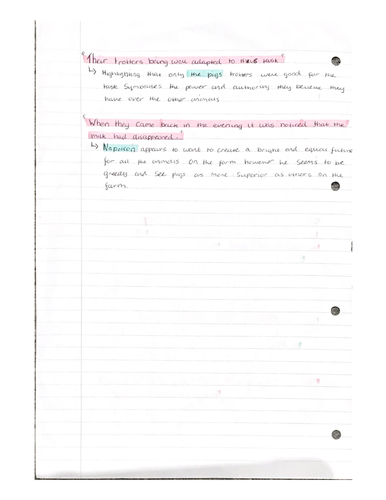 "Their trotters being well adapted to this task"
↳ Highlighting that only the pigs trotters were good for the
task symbolises the power and authority they believe they
have over the other animals
"When they came back in the evening it was noticed that the
milk had disappeared."
↳ Napoleon appears to want to create a bright and equal future
for all the animals on the farm however he seems to be
greedy and see pigs as more superior as others on the
farm.